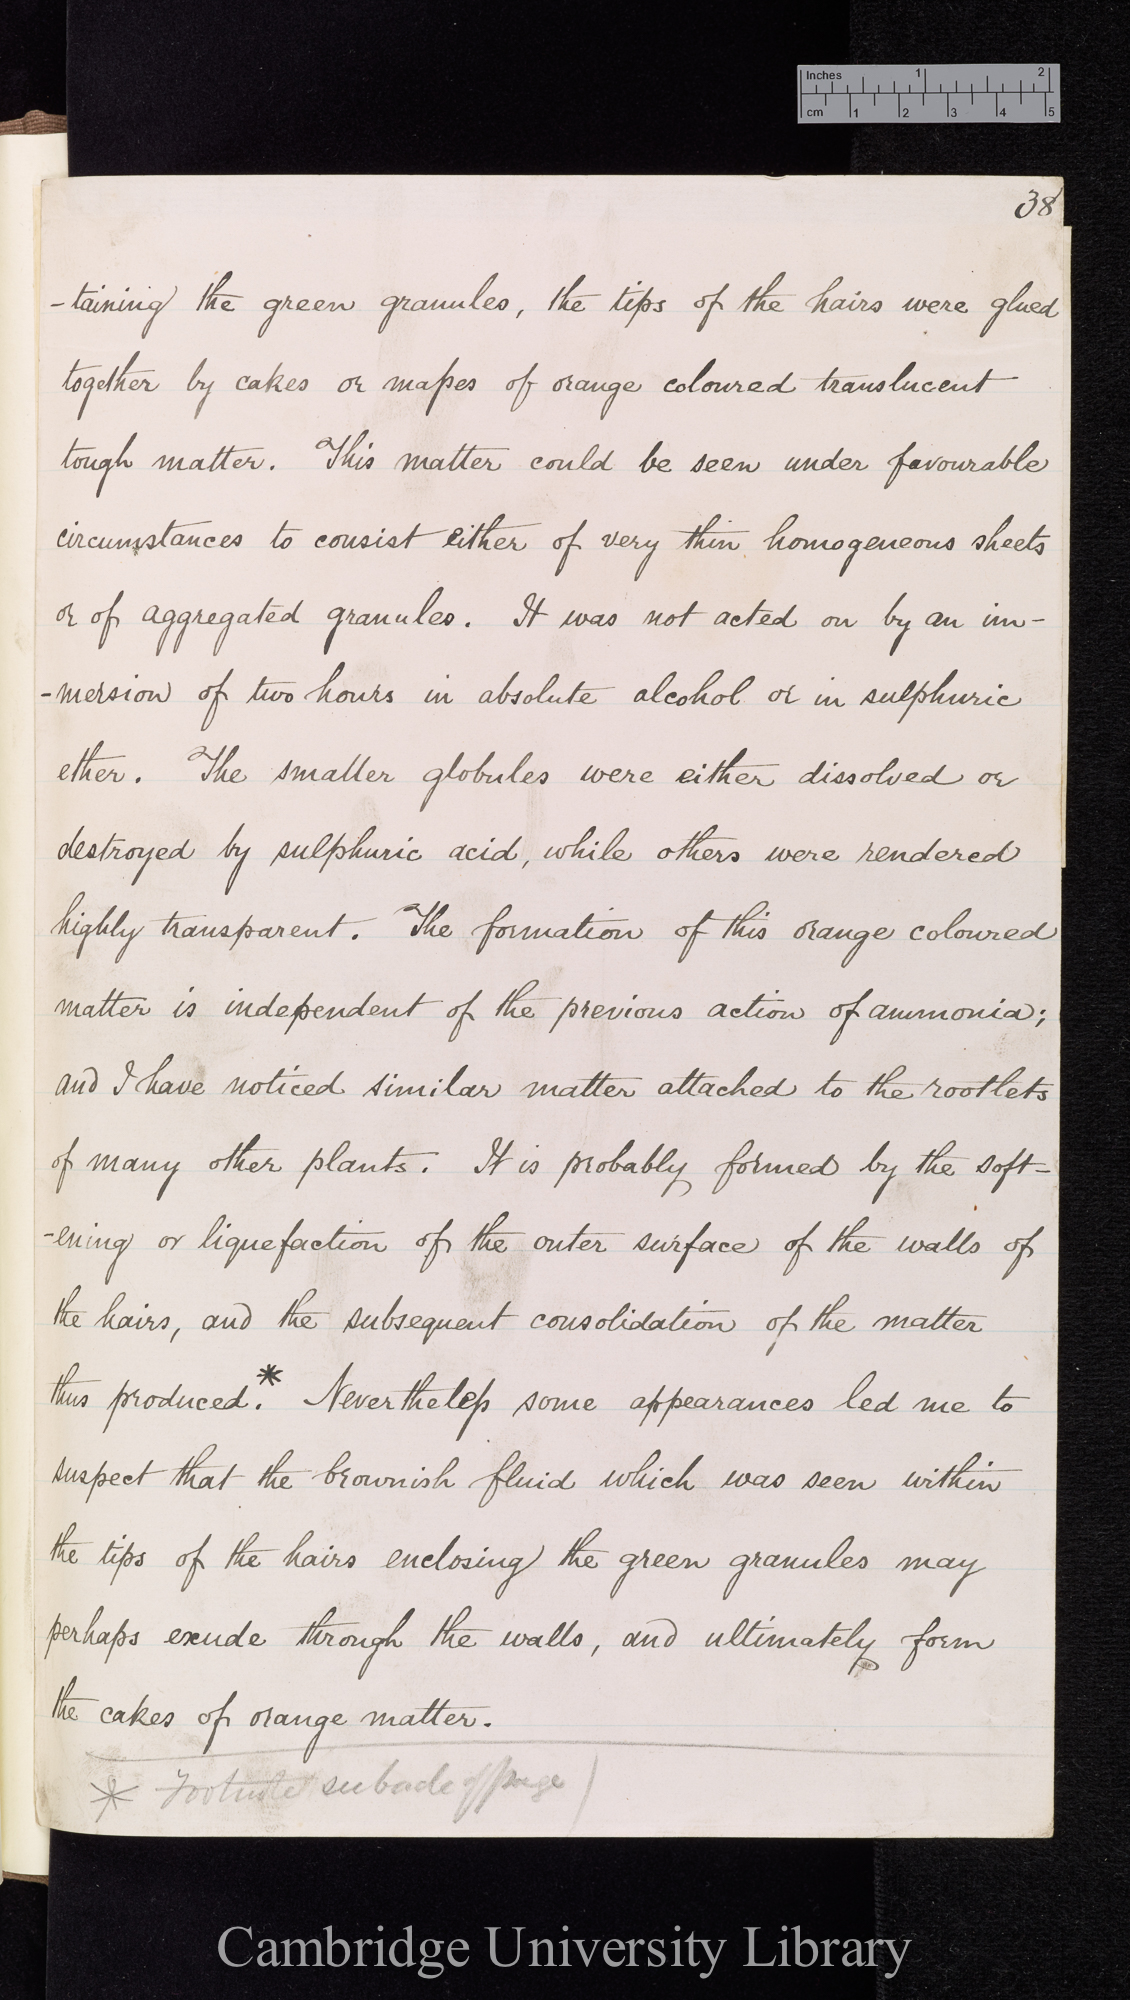 Inches 1 2
cm 1 2 3 4 5
38
-taining the green granules, the tips of the hairs were glued
together by cakes or masses of orange coloured translucent
tough matter. This matter could be seen under favourable
circumstances to consist either of very thin homogeneous sheets
or of aggregated granules. It was not acted on by an im-
-mersion of two hours in absolute alcohol or in sulphuric
ether. The smaller globules were either dissolved or
destroyed by sulphuric acid, while others were rendered
highly transparent. The formation of this orange coloured
matter is independent of the previous action of ammonia;
and I have noticed similar matter attached to the rootlets
of many other plants. It is probably formed by the soft-
-ening or liquefaction of the outer surface of the walls of
the hairs, and the subsequent consolidation of the matter
thus produced.* Nevertheless some appearances led me to
suspect that the brownish fluid which was seen within
the tips of the hairs enclosing the green granules may
perhaps exude through the walls, and ultimately form
the cakes of orange matter.
* Footnote of page
Cambridge University Library